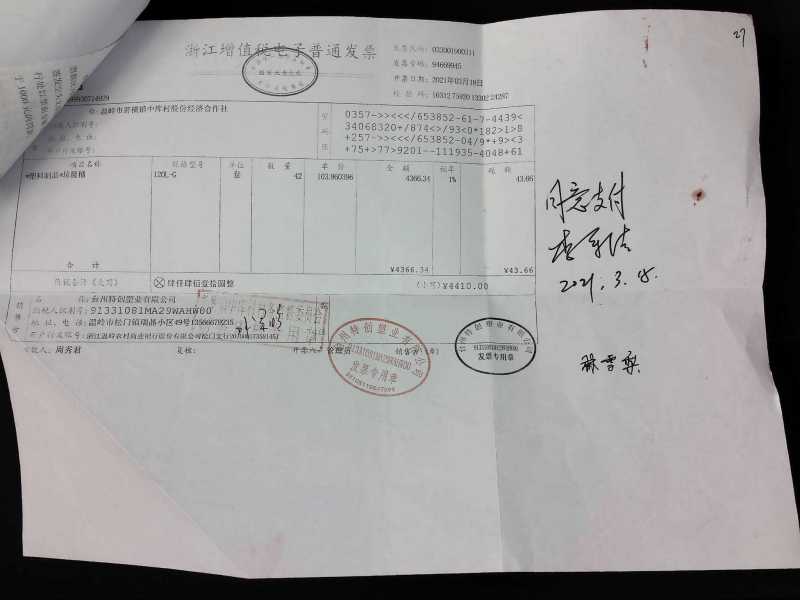 27
浙江增值税电子普通发票
发票代码: 033001900311
发票号码: 94669945
开票日期: 2021年03月18日
校验码: 16312 75920 13302 24297
称: 温岭市箬横镇中库村股份经济合作社
纳税人识别号:
地址、电话:
开户行及账号:
密码
0357->><<</653852-61-7-4439<
34068320+/874<>/93<0*182>1>8
+257->><<</653852-04/9*+9><3
+75+>77>9201--111935-4048+61
项目名称 规格型号 单位 数量 单价 金额 税率 税额
*塑料制品*垃圾桶 120L-G 套 42 103.960396 4366.34 1% 43.66
合计 ¥4366.34 ¥43.66
价税合计(大写) ⊗肆仟肆佰壹拾圆整 (小写)¥4410.00
销售方
名称: 台州特创塑业有限公司
纳税人识别号: 91331081MA29WAHW00
开票人: 管理员 销售方:(章)
收款人: 周秀君 复核:
台州特创塑业有限公司
91331081MA29WAHW00
发票专用章
台州特创塑业有限公司
91331081MA29WAHW00
发票专用章
同意支付
2021.3.18.